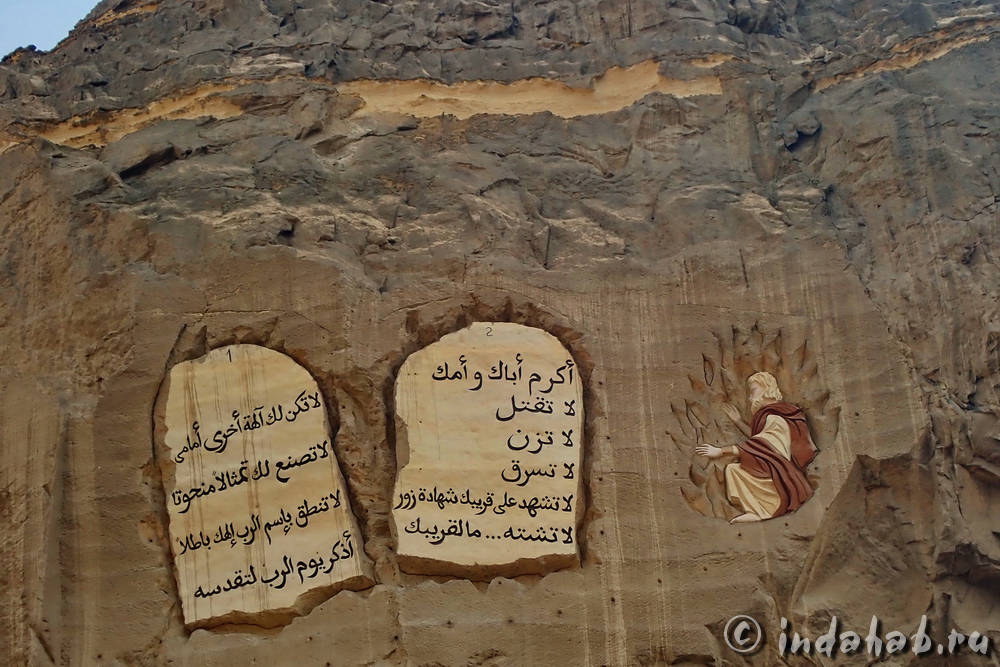 1
لا تكن لك آلهة أخرى أمامى
لا تصنع لك تمثالاً منحوتا
لا تنطق بإسم الرب إلهك باطلاً
أذكر يوم الرب لتقدسه
2
أكرم أباك و أمك
لا تقتل
لا تزن
لا تسرق
لا تشهد على قريبك شهادة زور
لا تشته... مالقريبك
© indahab.ru